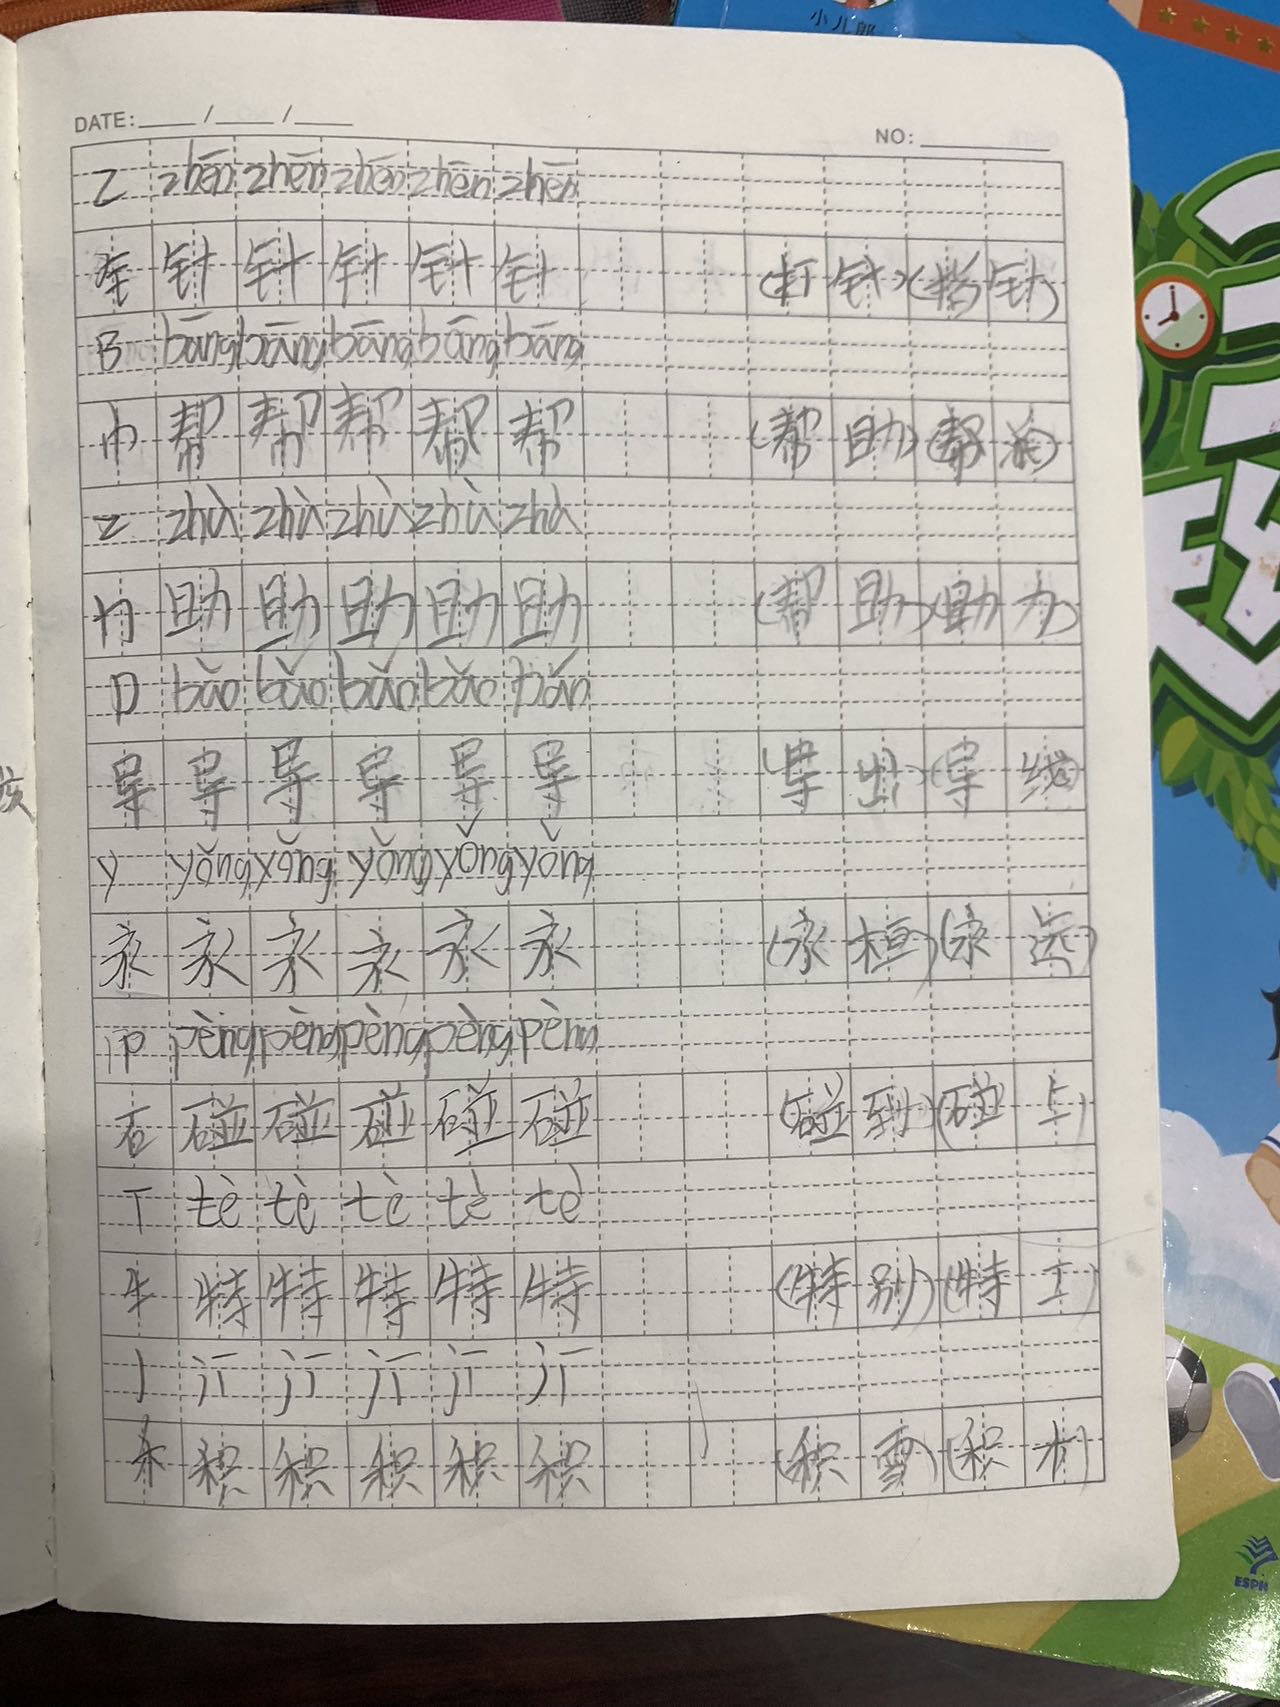 小儿郎
DATE: / /
NO:
Z zhēn zhēn zhēn zhēn zhēn
钅 针 针 针 针 针 (打针)(指针)
B bāng bāng bāng bāng bāng
巾 帮 帮 帮 帮 帮 (帮助)(帮派)
Z zhù zhù zhù zhù zhù
力 助 助 助 助 助 (帮助)(助力)
D bǎo bǎo bǎo bǎo
导 导 导 导 导 导 (导出)(导线)
Y yǒng yǒng yǒng yǒng yǒng
永 永 永 永 永 永 (永桓)(永远)
P pèng pèng pèng pèng pèng
石 碰 碰 碰 碰 碰 (碰到)(碰上)
T tè tè tè tè tè
牛 特 特 特 特 特 (特别)(特工)
J jī jī jī jī jī
禾 积 积 积 积 积 (积雪)(积木)
ESPH